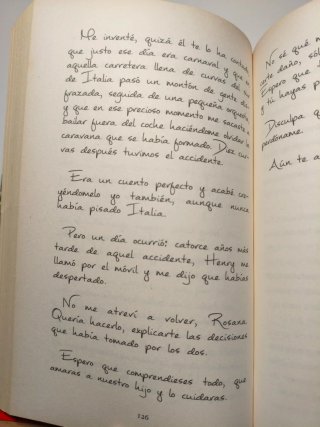 Me inventé, quizá él te lo ha contado,
que justo ese día era carnaval y que por
aquella carretera llena de curvas del sur
de Italia pasó un montón de gente dis-
frazada, seguida de una pequeña orquesta,
y que en ese precioso momento me sacaste a
bailar fuera del coche haciéndome olvidar la
caravana que se había formado. Diez cur-
vas después tuvimos el accidente.
Era un cuento perfecto y acabé cre-
yéndomelo yo también, aunque nunca
había pisado Italia.
Pero un día ocurrió: catorce años más
tarde de aquel accidente, Henry me
llamó por el móvil y me dijo que habías
despertado.
No me atreví a volver, Rosana.
Quería hacerlo, explicarte las decisiones
que había tomado por los dos.
Espero que comprendieses todo, que
amaras a nuestro hijo y lo cuidaras.
126
No sé qué m
certe daño, sól
Espero que
y tú hayas p
Disculpa q
perdóname.
Aún te a